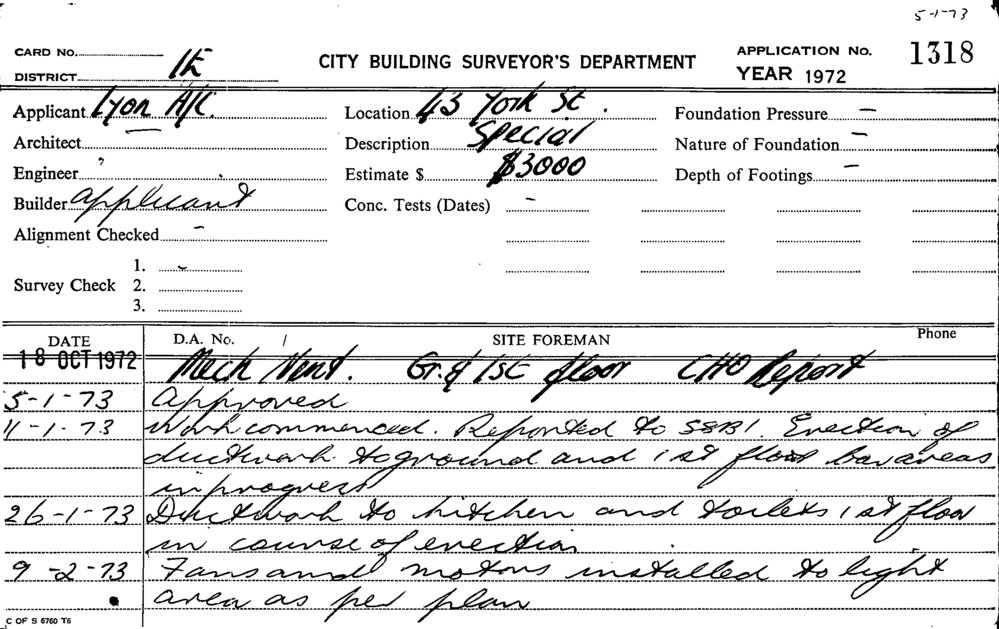 5-1-73
CARD No. CITY BUILDING SURVEYOR'S DEPARTMENT APPLICATION No. 1318
DISTRICT 1E YEAR 1972
Applicant Lyon A/C. Location 43 York St. Foundation Pressure —
Architect — Description Special Nature of Foundation —
Engineer Estimate $ $3000 Depth of Footings —
Builder applicant Conc. Tests (Dates) -
Alignment Checked -
1.
Survey Check 2.
3.
DATE D.A. No. / SITE FOREMAN Phone
18 OCT 1972 Mech Vent. Gr. & 1st floor CHO Report
5-1-73 Approved
11-1-73 Work commenced. Reported to SSBI. Erection of
ductwork to ground and 1st floor bar areas
in progress
26-1-73 Ductwork to kitchen and toilets 1st floor
in course of erection
9-2-73 Fans and motors installed to light
area as per plan
C OF S 6760 T6